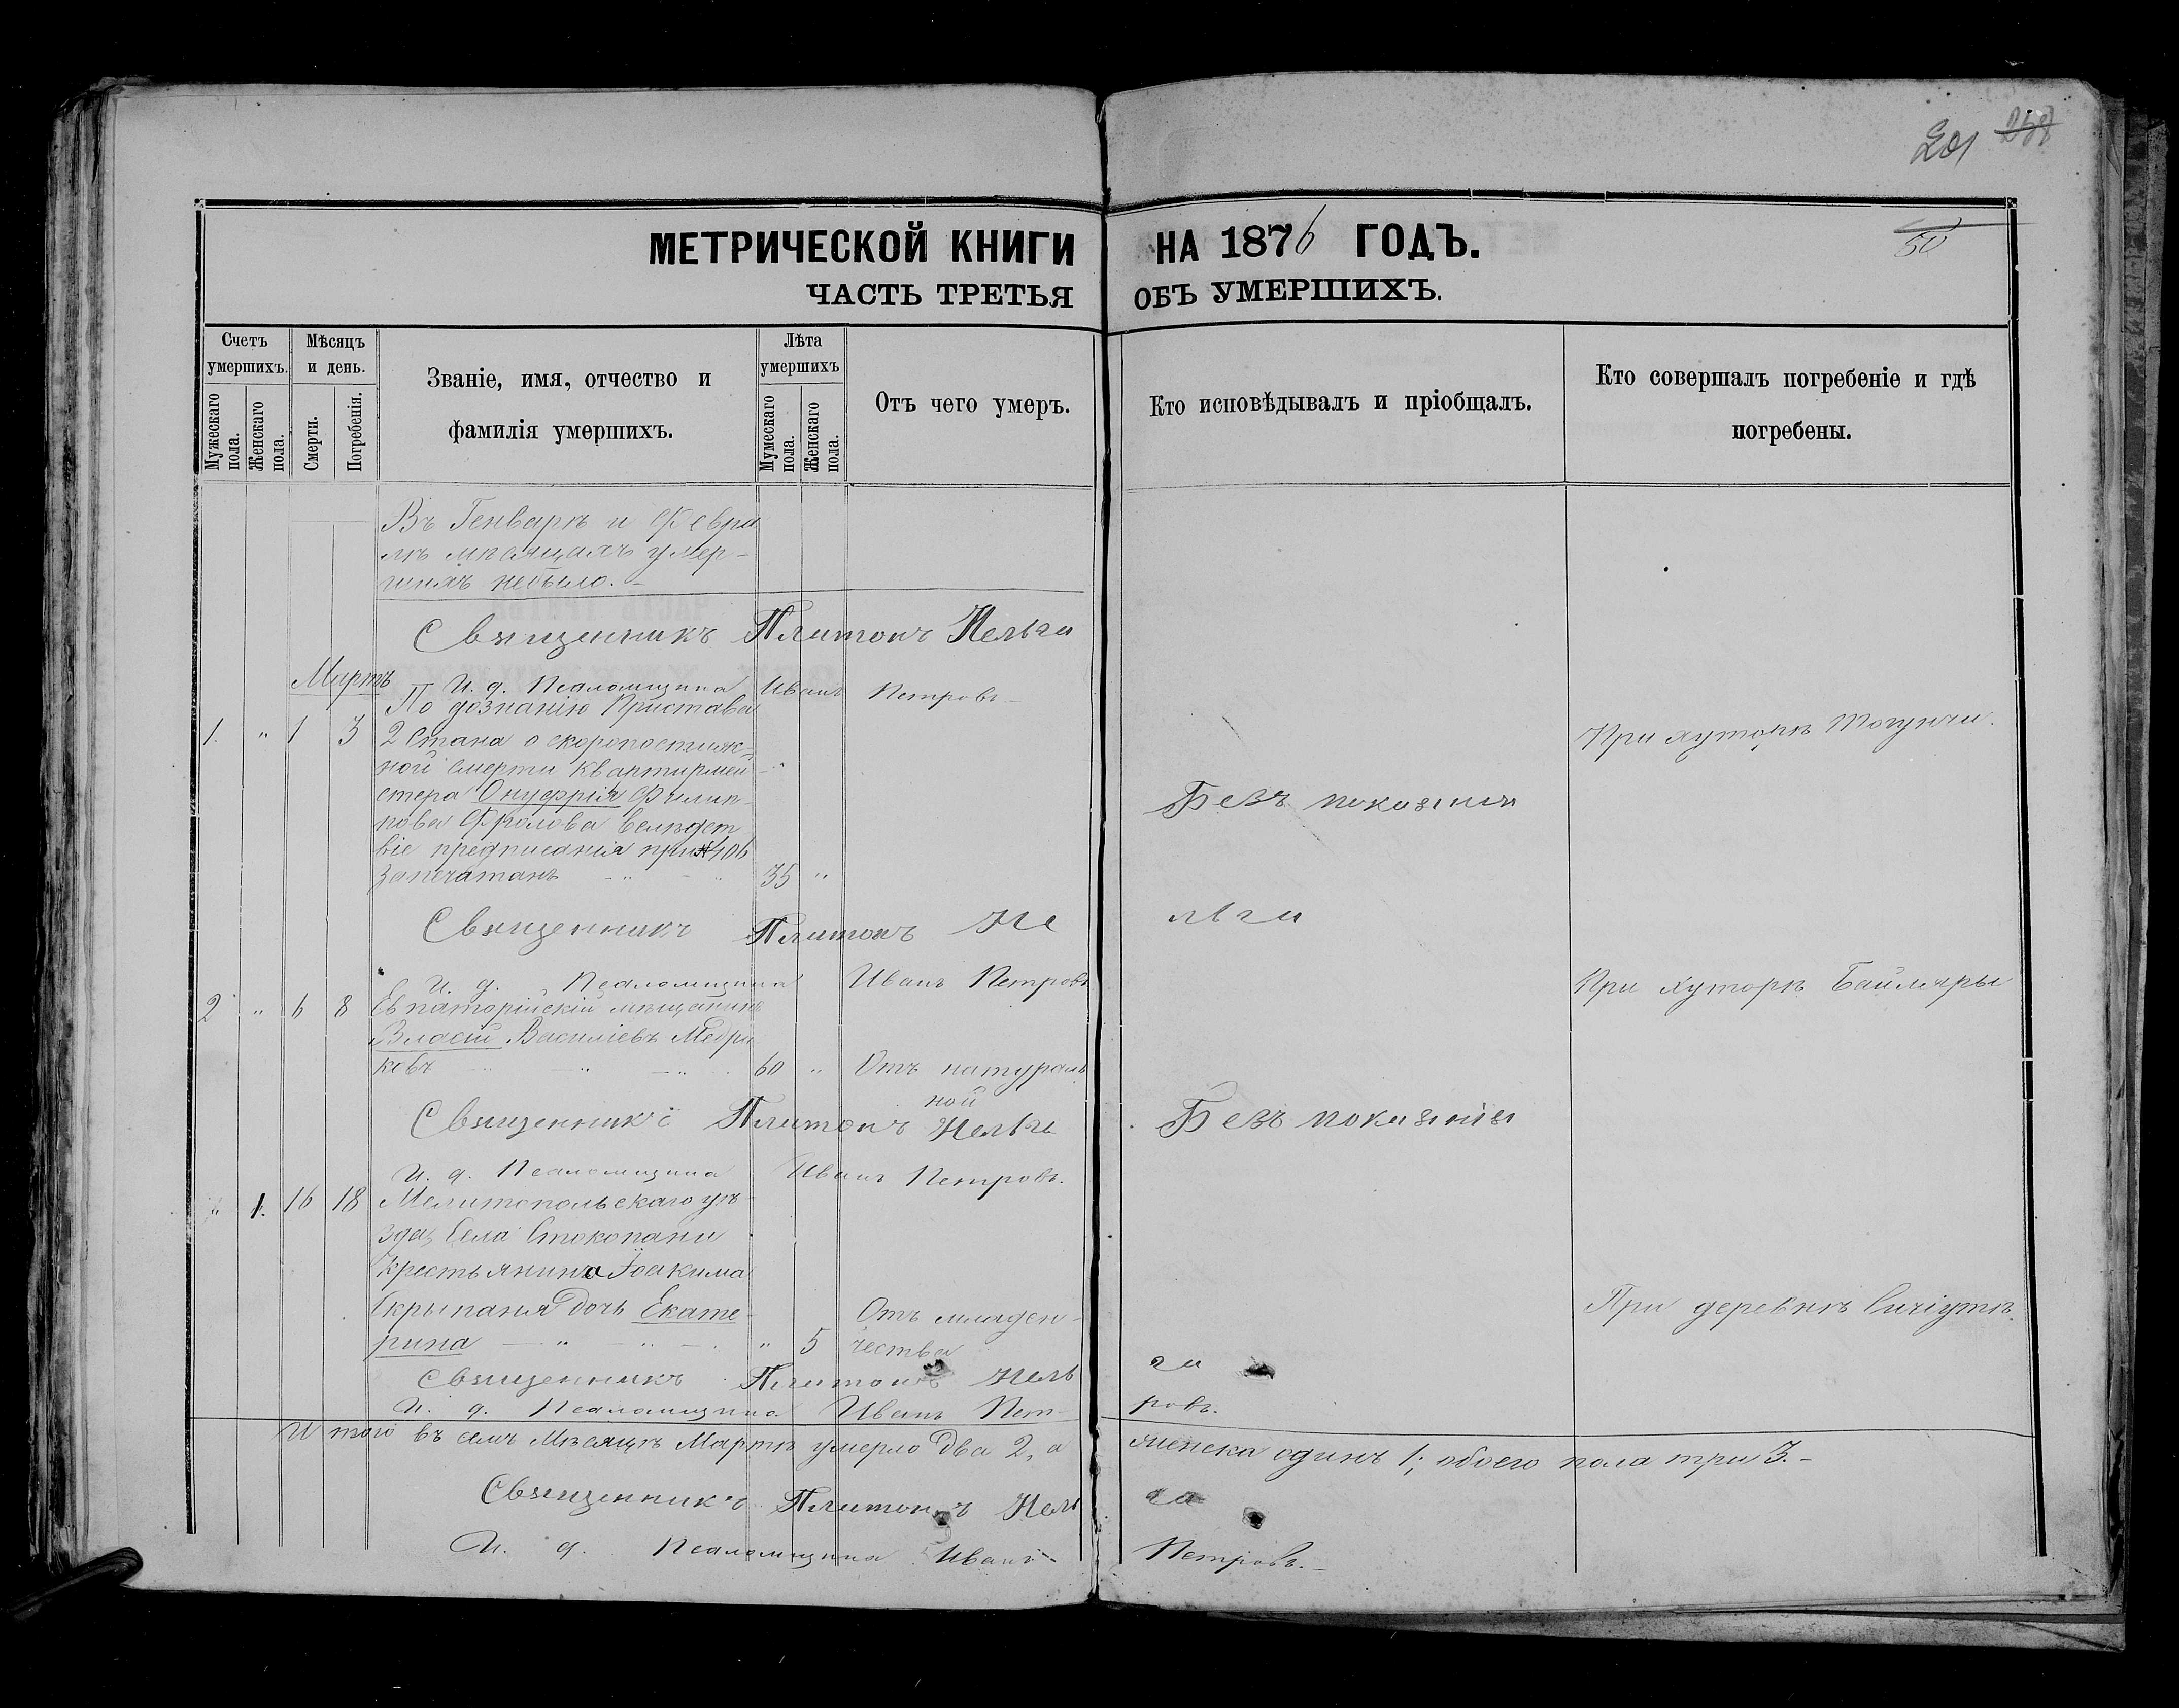 201 258
МЕТРИЧЕСКОЙ КНИГИ НА 1876 ГОДЪ.
50
ЧАСТЬ ТРЕТЬЯ ОБЪ УМЕРШИХЪ.
Счетъ умершихъ.
Мужескаго пола.
Женскаго пола.
Мѣсяцъ и день.
Смерти.
Погребенія.
Званіе, имя, отчество и
фамилія умершихъ.
Лѣта умершихъ
Мужескаго пола.
Женскаго пола.
Отъ чего умеръ.
Кто исповѣдывалъ и пріобщалъ.
Кто совершалъ погребеніе и гдѣ
погребены.
Въ Генварѣ и Февра
лѣ мѣсяцахъ умер-
шихъ небыло.-
Священникъ Платонъ Нельга
Мартъ
И. д. Псаломщика Иванъ Петровъ
По дознанію Пристава
1. " 1 3 2 Стана о скоропостиж-
ной смерти Квартирмей
стера Онуфрія Филип-
пова Фролова вслѣдст
віе предписанія при № 106
Запечатанъ 35 "
Безъ покаянія
При хуторѣ Тогунчи.
Священникъ Платонъ Нельга
И. д. Псаломщика Иванъ Петровъ
2 " 6 8 Евпаторійскій мѣщанинъ
Власій Василіевъ Медри
ковъ 60 " Отъ натураль
ной
Безъ покаянія
При хуторѣ Байляры
Священникъ Платонъ Нельга
И. д. Псаломщика Иванъ Петровъ.
" 1. 16 18 Мелитопольскаго уѣ-
зда, Села Стокопани
крестьянина Іоакима
Скрыпаня дочь Екате-
рина " 5 Отъ младен-
чества
При деревнѣ
Священникъ Платонъ Нельга
И. д. Псаломщика Иванъ Петровъ.
Итого въ семъ Мѣсяцѣ Мартѣ умерло два 2, а женска одинъ 1; обоего пола три 3.-
Священникъ Платонъ Нельга
И. д. Псаломщика Иванъ Петровъ.-